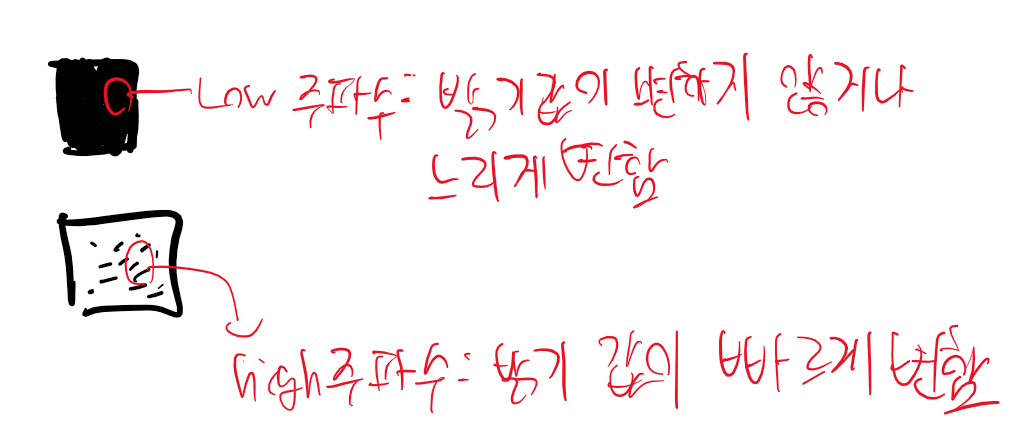 Low 주파수:밝기값이 변하지 않거나
느리게 변함
high주파수: 밝기 값이 빠르게 변함